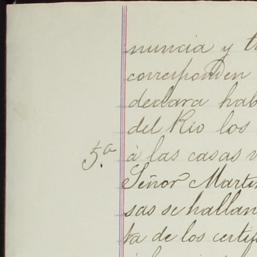 nuncia y
corresponden
declara hab
del Rio los
5.a
á las casas
Señor Marti
sas se hallan
ta de los certi